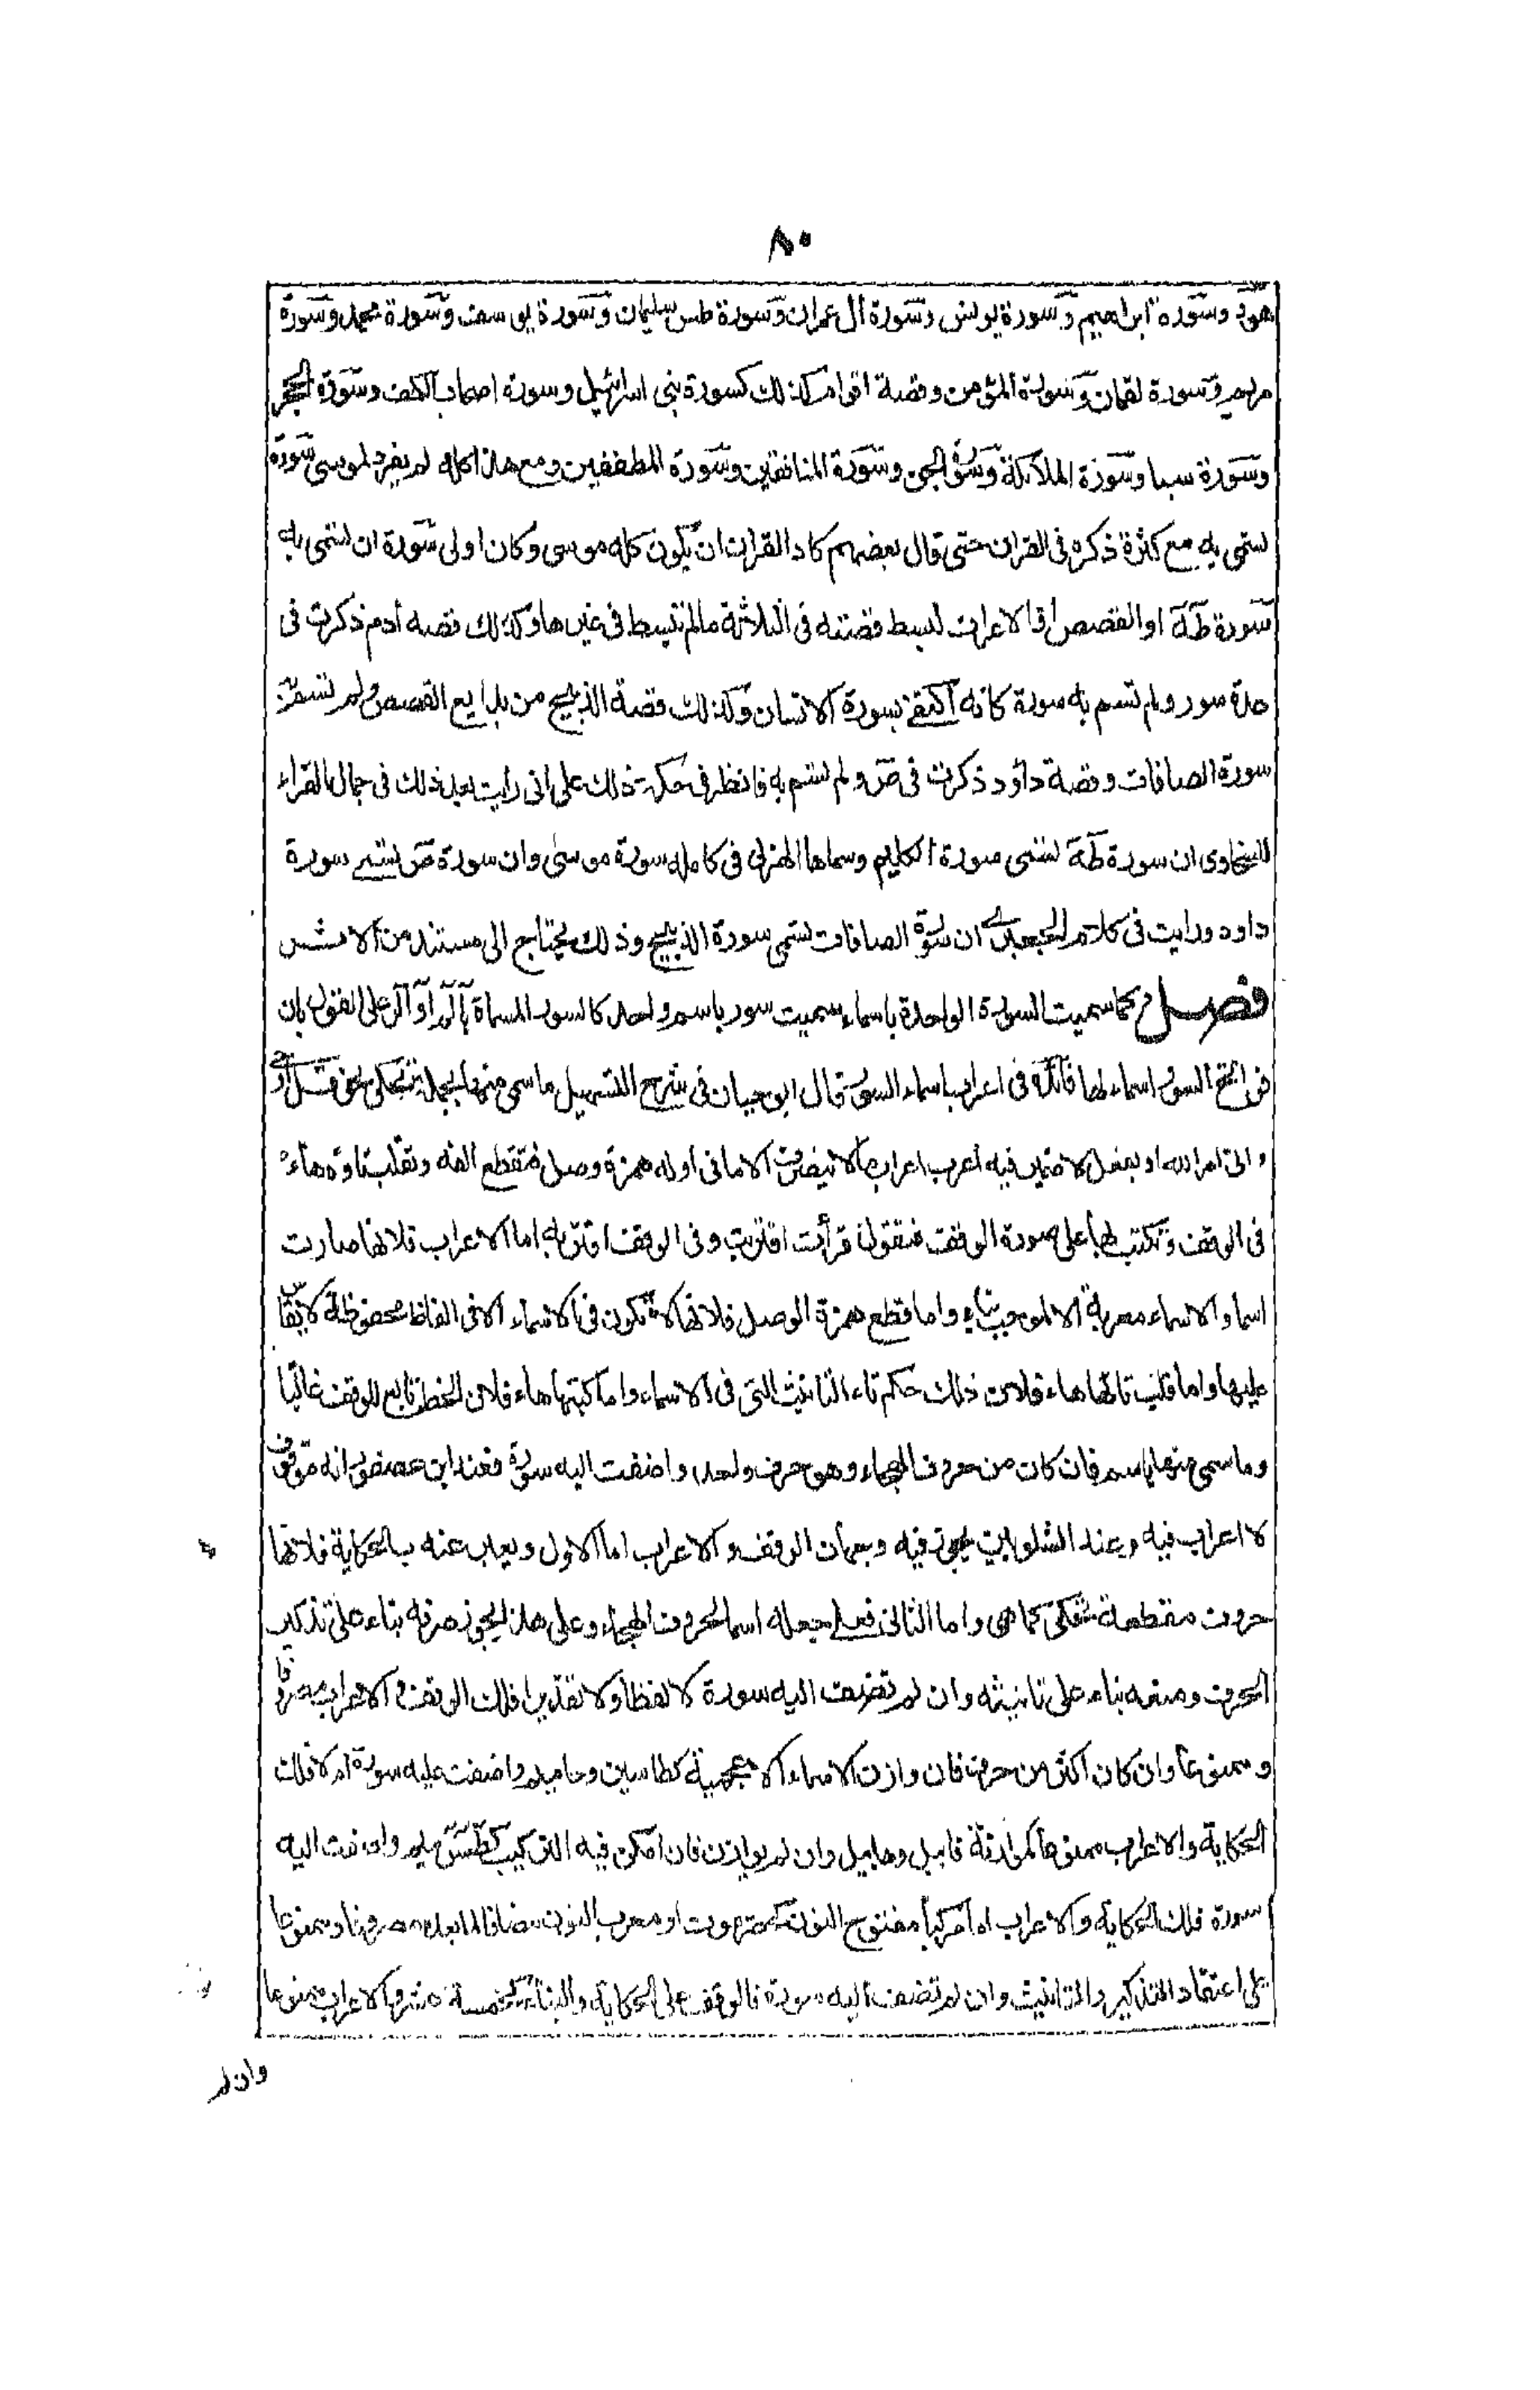 ٨٠
هود وسورة ابراهيم وسورة يونس وسورة آل عمران وسورة طس سليمان وسورة يوسف وسورة محمد وسورة
مريم وسورة لقمان وسورة المؤمن وقصة اقوام كذلك كسورة بنى اسرائيل وسورة اصحاب الكهف وسورة الحجر
وسورة سبا وسورة الملائكة وسورة الجن وسورة المنافقين وسورة المطففين ومع هذا كله لم يفرد لموسى سورة
تسمى به مع كثرة ذكره فى القران حتى قال بعضهم كاد القران ان يكون كله موسى وكان اولى سورة ان تسمى به
سورة طه او القصص او الاعراف لبسط قصته فى الثلاثة مالم تبسط فى غيرها وكذلك قصة آدم ذكرت فى
عدة سور ولم تسم به سورة كانه اكتفى بسورة الانسان وكذلك قصة الذبيح من بدايع القصص ولم تسم به
سورة الصافات وقصة داؤد ذكرت فى ص ولم تسم به فانظر فى حكمة ذلك على انى رايت بعد ذلك فى جمال القراء
للسخاوى ان سورة طه تسمى سورة الكليم وسماها الهذلى فى كامله سورة موسى وان سورة ص تسمى سورة
داود ورايت فى كلام الجعبرى ان سورة الصافات تسمى سورة الذبيح وذلك يحتاج الى مستند من الاثر
فصل وكما سميت السورة الواحدة باسماء سميت سور باسم واحد كالسور المسماة بالم او الر على القول بان
فواتح السور اسماء لها فائدة فى اعراب اسماء السور قال ابو حيان فى شرح التسهيل ما سمى منها بجملة تحكى نحو قل اوحى
واتى امر الله او بفعل لا ضمير فيه اعرب اعراب ما لا ينصرف الا ما فى اوله همزة وصل فتقطع الفه وتقلب تاؤه هاء
فى الوقف وتكتب هاء على صورة الوقف فتقول قرأت اقتربة وفى الوقف اقتربه اما الاعراب فلانها صارت
اسما والاسماء معربة الا لموجب بناء واما قطع همزة الوصل فلانها لا تكون فى الاسماء الا فى الفاظ محفوظة لا يقاس
عليها واما قلب تائها هاء فلان ذلك حكم تاء التانيث التى فى الاسماء واما كتبها هاء فلان الخط تابع للوقف غالبا
وما سمى منها باسم فان كان من حروف الهجاء وهو حرف واحد واضفت اليه سورة فعند ابن عصفور انه موقوف
لا اعراب فيه وعند الشلوبين يجوز فيه وجهان الوقف والاعراب اما الاول ويعبر عنه بالحكاية فلانها
حروف مقطعة تحكى كما هى واما الثانى فعلى جعله اسما لحروف الهجاء وعلى هذا يجوز صرفه بناء على تذكير
الحرف ومنعه بناء على تانيثه وان لم تضف اليه سورة لا لفظا ولا تقديرا فلك الوقف والاعراب مصروفا
وممنوعا وان كان اكثر من حرف فان وازن الاسماء الاعجمية كطاسين وحاميم واضفت عليه سورة ام لا فلك
الحكاية والاعراب ممنوعا لموازنة قابيل وهابيل وان لم يوازن فان امكن فيه التركيب كطسم ميم واضفت اليه
سورة فلك الحكاية والاعراب اما مركبا مفتوح النون كحضرموت او معرب النون مضافا لما بعده مصروفا وممنوعا
على اعتقاد التذكير والتانيث وان لم تضف اليه سورة فالوقف على الحكاية والبناء كخمسة عشر والاعراب ممنوعا
وان لم